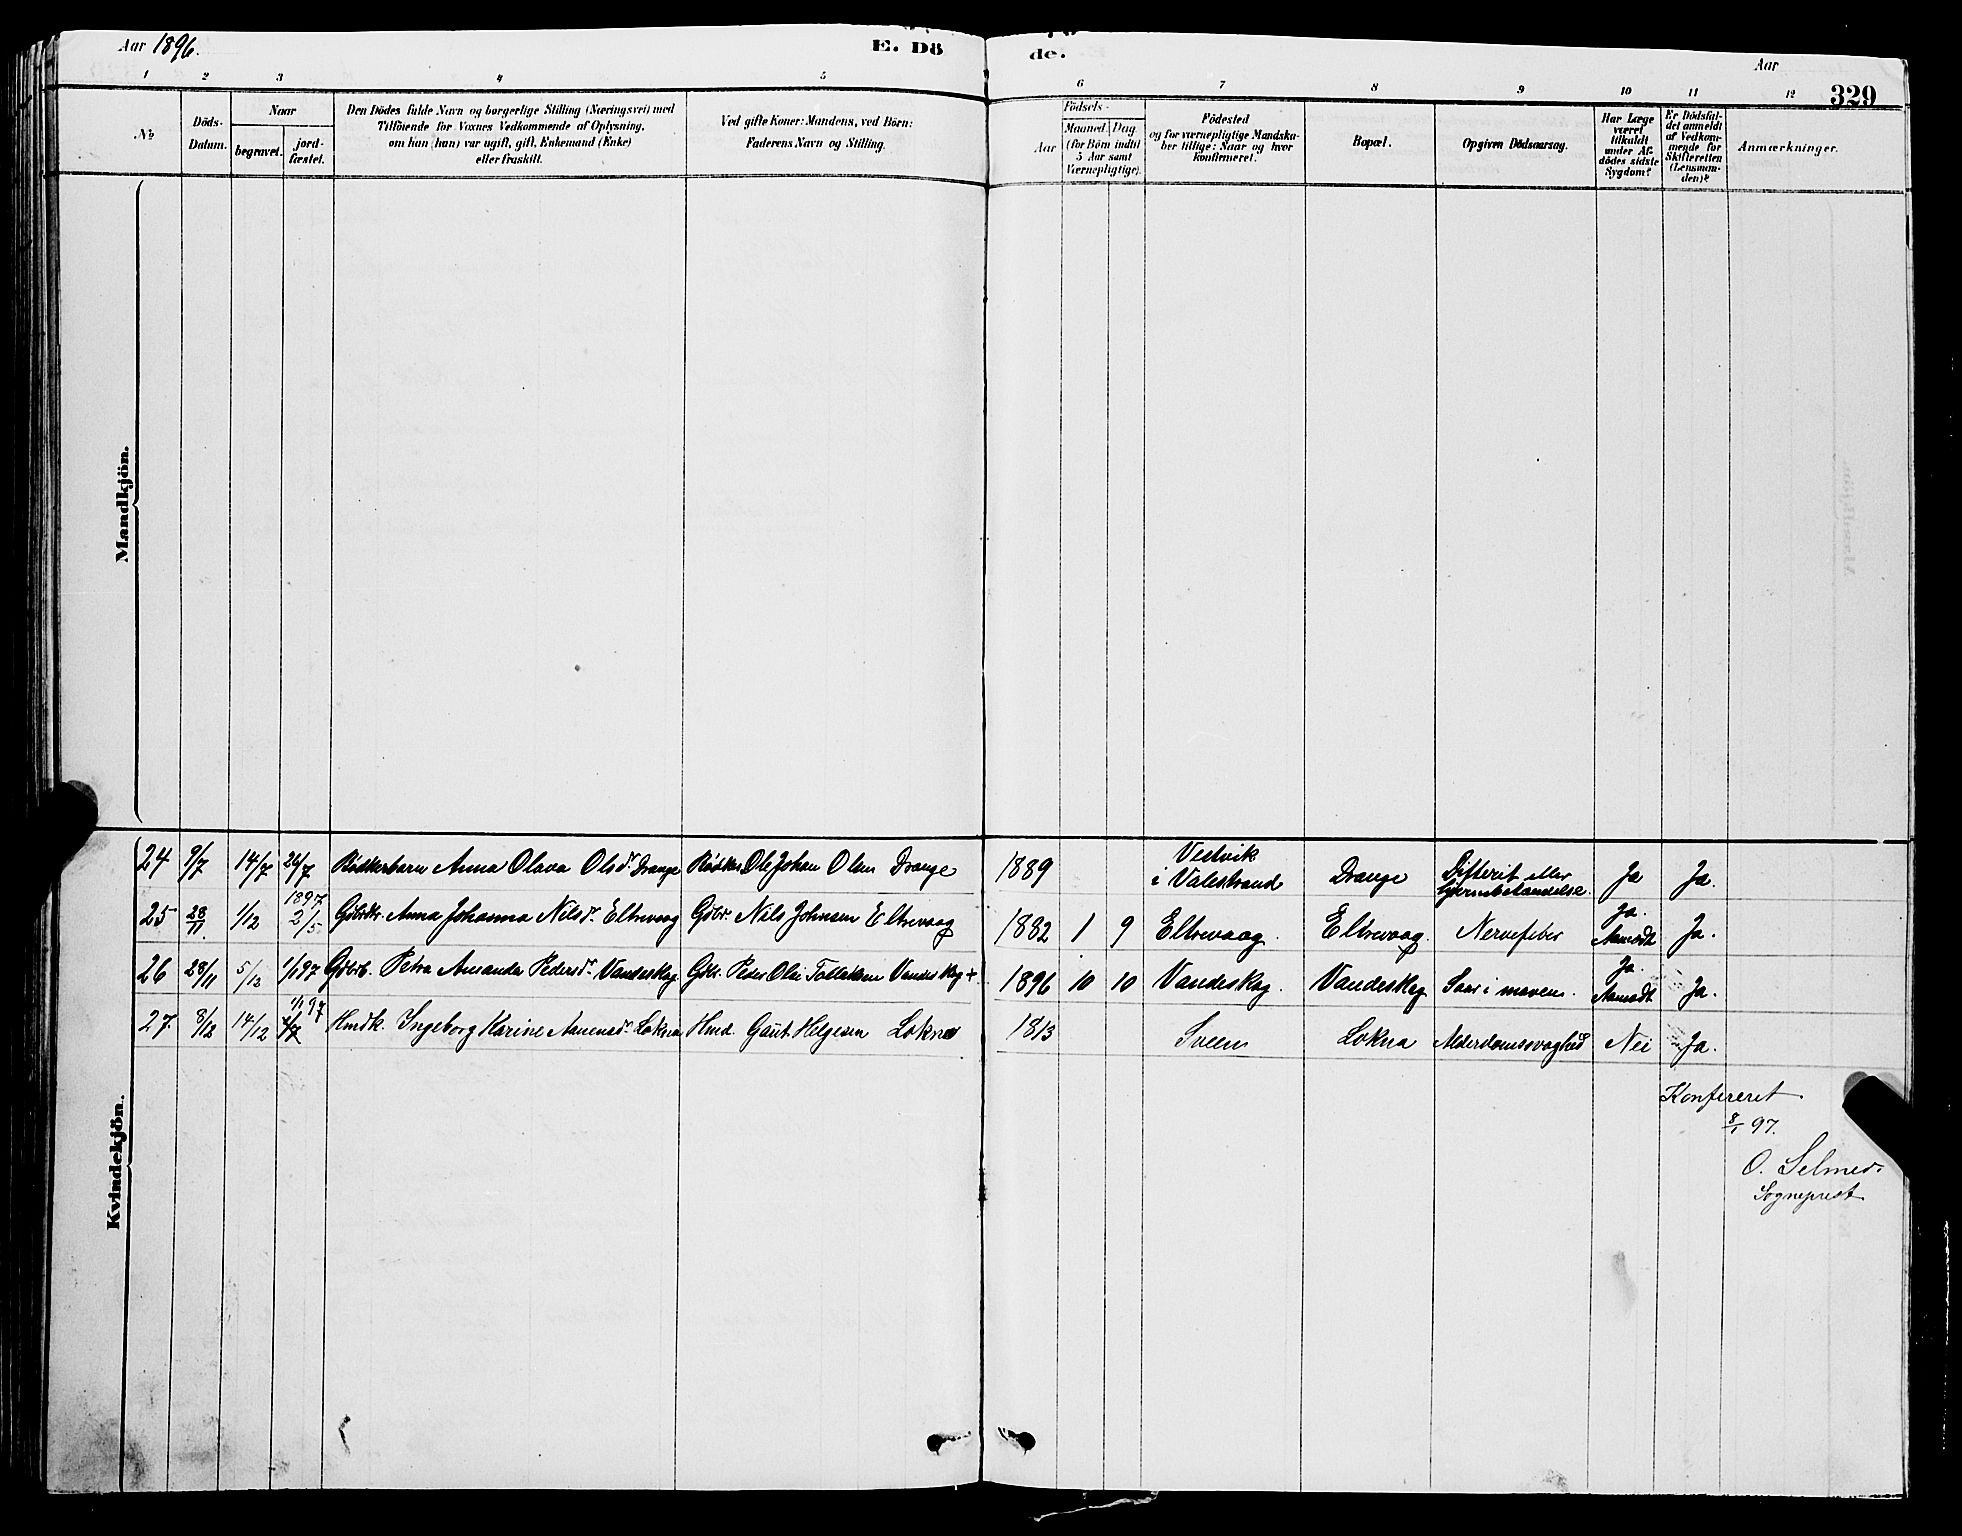 Aar 1896.
E. Dö
de.
Aar
329
1 2 3 4 5 6 7 8 9 10 11 12
No
Döds-
Datum.
Naar
begravet.
jord-
fæstet.
Den Dödes fulde Navn og borgerlige Stilling (Næringsvei) med
Tilföiende for Voxnes Vedkommende af Oplysning,
om han (hun) var ugift, gift, Enkemand (Enke)
eller fraskilt.
Ved gifte Koner: Mandens, ved Börn:
Faderens Navn og Stilling.
Födsels-
Aar
Maaned. Dag
(for Börn indtil
5 Aar samt
Værnepligtige).
Födested
og for værnepligtige Mandska-
ber tillige: Naar og hvor
konfirmeret.
Bopæl.
Opgiven Dödsaarsag.
Har Læge
været
tilkaldt
under Af-
dödes sidste
Sygdom?
Er Dödsfal-
det anmeldt
af Vedkom-
mende for
Skifteretten
(Lensman-
den)?
Anmærkninger.
Mandkjön.
Kvindekjön.
24 9/7 14/7 26/7 Bødkerbarn Anna Olava Olsdr Drange Bødker Ole Johan Olsen Drange 1889 Vestvik
i Valestrand Drange Difterit eller
Hjernebetændelse. Ja Ja.
25 28/11 1/12 1897
2/5 Gdbrdtr. Anna Johanna Nilsdr. Eltrevaag Gdbr. Nils Johnsen Eltrevaag 1882 1 9 Eltrevaag. Eltrevaag. Nervefeber Ja.
Aamodt Ja.
26 28/11 5/12 1/1 97 Gdbrb. Petra Amanda Pedersdr. Vandeskog Gdbr. Peder Olai Tollaksen Vandeskog + 1896 10 10 Vandeskog. Vandeskog Saar i maven. Ja.
Aamodt Ja.
27. 8/12 14/12 1/1 97 Hmdk. Ingeborg Karine Aamensdr. Lokna Hmd. Gaut Helgesen Lokna 1813 Sveen Lokna Alderdomssvaghed Nei Ja.
Konfereret
8/1 97.
O. Selmer.
Sogneprest